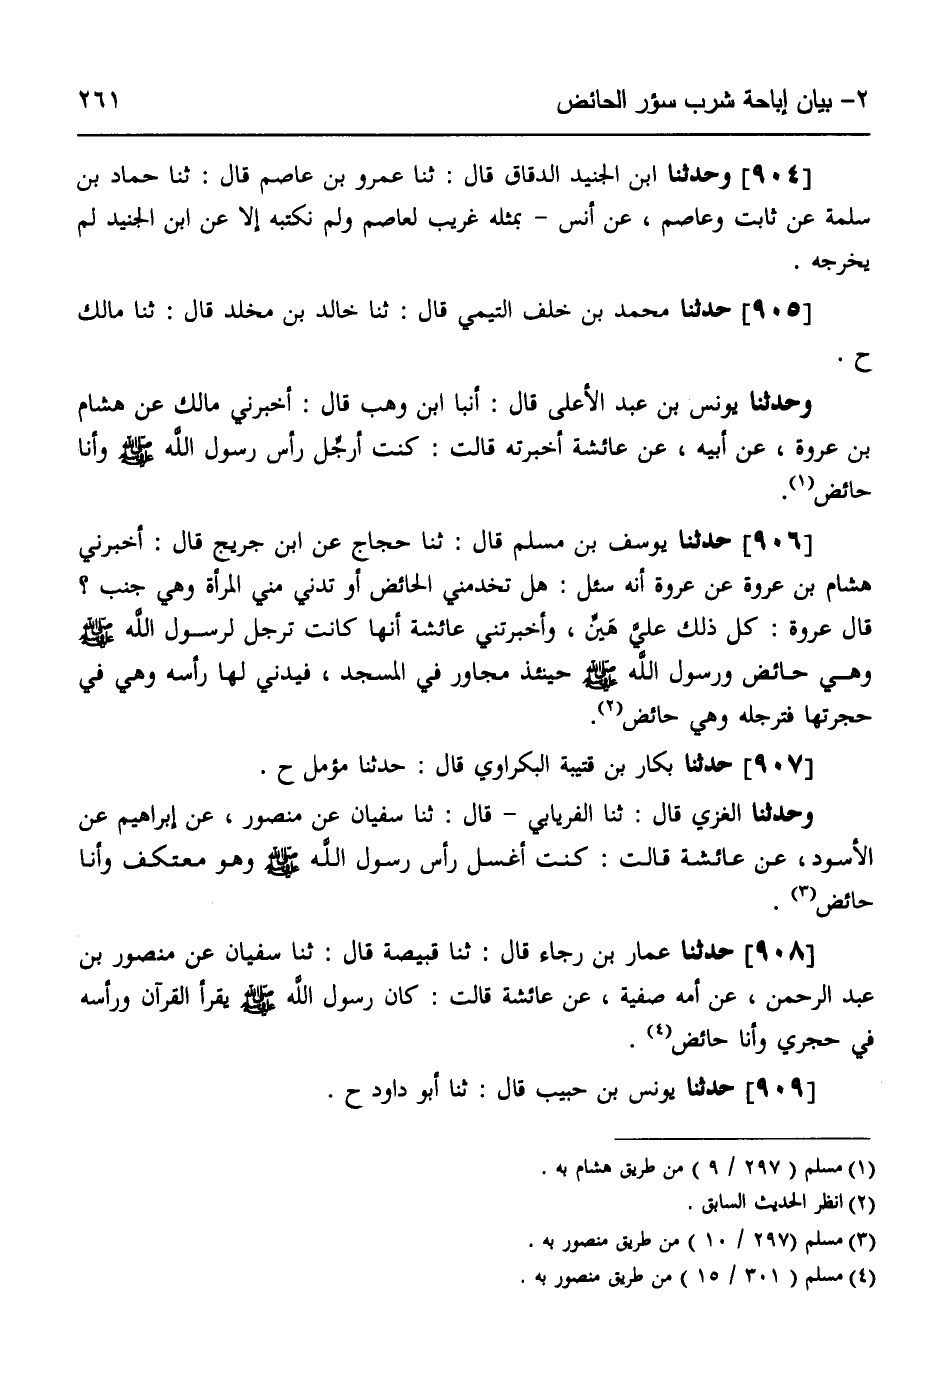 ٢- بيان إباحة شرب سؤر الحائض ٢٦١
[٩٠٤] وحدثنا ابن الجنيد الدقاق قال : ثنا عمرو بن عاصم قال : ثنا حماد بن
سلمة عن ثابت وعاصم ، عن أنس - بمثله غريب لعاصم ولم نكتبه إلا عن ابن الجنيد لم
يخرجه .
[٩٠٥] حدثنا محمد بن خلف التيمي قال : ثنا خالد بن مخلد قال : ثنا مالك
ح .
وحدثنا يونس بن عبد الأعلى قال : أنبا ابن وهب قال : أخبرني مالك عن هشام
بن عروة ، عن أبيه ، عن عائشة أخبرته قالت : كنت أرجُل رأس رسول اللَّه ﷺ وأنا
حائض(١).
[٩٠٦] حدثنا يوسف بن مسلم قال : ثنا حجاج عن ابن جريج قال : أخبرني
هشام بن عروة عن عروة أنه سئل : هل تخدمني الحائض أو تدني مني المرأة وهي جنب ؟
قال عروة : كل ذلك عليَّ هَينٌ ، وأخبرتني عائشة أنها كانت ترجل لرسول اللَّه ﷺ
وهي حائض ورسول اللَّه ﷺ حينئذ مجاور في المسجد ، فيدني لها رأسه وهي في
حجرتها فترجله وهي حائض(٢).
[٩٠٧] حدثنا بكار بن قتيبة البكراوي قال : حدثنا مؤمل ح .
وحدثنا الغزي قال : ثنا الفريابي - قال : ثنا سفيان عن منصور ، عن إبراهيم عن
الأسود، عن عائشة قالت : كنت أغسل رأس رسول اللَّه ﷺ وهو معتكف وأنا
حائض(٣) .
[٩٠٨] حدثنا عمار بن رجاء قال : ثنا قبيصة قال : ثنا سفيان عن منصور بن
عبد الرحمن ، عن أمه صفية ، عن عائشة قالت : كان رسول اللَّه ﷺ يقرأ القرآن ورأسه
في حجري وأنا حائض(٤) .
[٩٠٩] حدثنا يونس بن حبيب قال : ثنا أبو داود ح .
(١) مسلم ( ٢٩٧ / ٩ ) من طريق هشام به .
(٢) انظر الحديث السابق .
(٣) مسلم (٢٩٧ / ١٠ ) من طريق منصور به .
(٤) مسلم ( ٣٠١ / ١٥ ) من طريق منصور به .